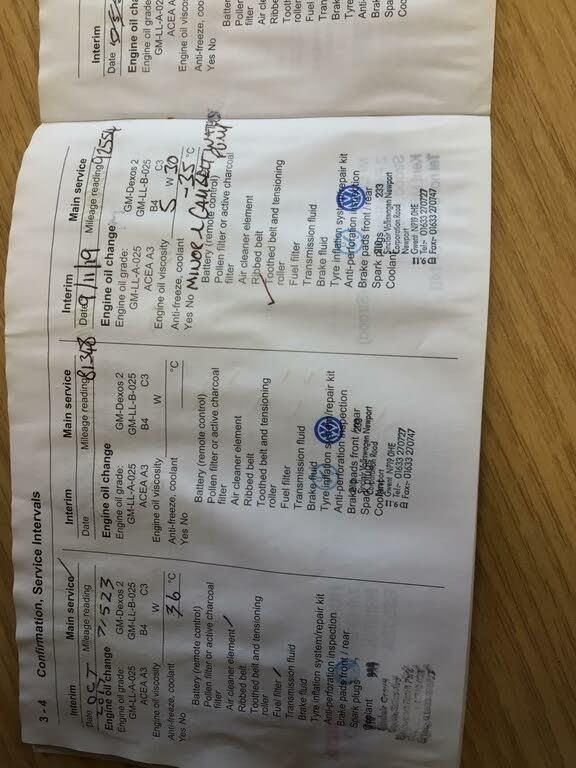 3 - 4 Confirmation, Service Intervals
Interim Main service
Date Mileage reading
OCT 71523
Engine oil change
Engine oil grade: GM-Dexos 2
GM-LL-A-025 GM-LL-B-025
ACEA A3 B4 C3
Engine oil viscosity W
Anti-freeze, coolant 36 °C
Yes No
Battery (remote control)
Pollen filter or active charcoal
filter
Air cleaner element
Ribbed belt
Toothed belt and tensioning
roller
Fuel filter
Transmission fluid
Brake fluid
Tyre inflation system/repair kit
Anti-perforation inspection
Brake pads front / rear
Spark plugs
Coolant
Interim Main service
Date Mileage reading 81348
Engine oil change
Engine oil grade: GM-Dexos 2
GM-LL-A-025 GM-LL-B-025
ACEA A3 B4 C3
Engine oil viscosity W
Anti-freeze, coolant °C
Yes No
Battery (remote control)
Pollen filter or active charcoal
filter
Air cleaner element
Ribbed belt
Toothed belt and tensioning
roller
Fuel filter
Transmission fluid
Brake fluid
Tyre inflation system/repair kit
Anti-perforation inspection
Brake pads front / rear
Spark plugs 233
Coolant Volkswagen Newport
Corporation Road
Newport
Gwent NP19 0HE
Tel:- 01633 270727
Fax:- 01633 270747
Interim Main service
Date 9/11/19 Mileage reading 92554
Engine oil change
Engine oil grade: GM-Dexos 2
GM-LL-A-025 GM-LL-B-025
ACEA A3 B4 C3
Engine oil viscosity 5 W 30
Anti-freeze, coolant -35 °C
Yes No MINOR + CAMBELT
PUMP
Battery (remote control)
Pollen filter or active charcoal
filter
Air cleaner element
Ribbed belt
Toothed belt and tensioning
roller
Fuel filter
Transmission fluid
Brake fluid
Tyre inflation system/repair kit
Anti-perforation inspection
Brake pads front / rear
Spark plugs 233
Coolant Volkswagen Newport
Corporation Road
Newport
Gwent NP19 0HE
Tel:- 01633 270727
Fax:- 01633 270747
Interim
Date
Engine oil
Engine oil grade
GM-LL-A-02
ACEA A3
Engine oil viscos
Anti-freeze, cool
Yes No
Batter
Pollen
filter
Air cle
Ribbe
Tooth
roller
Fuel fil
Transm
Brak
Tyre
Anti-
Brak
Spa
Coo